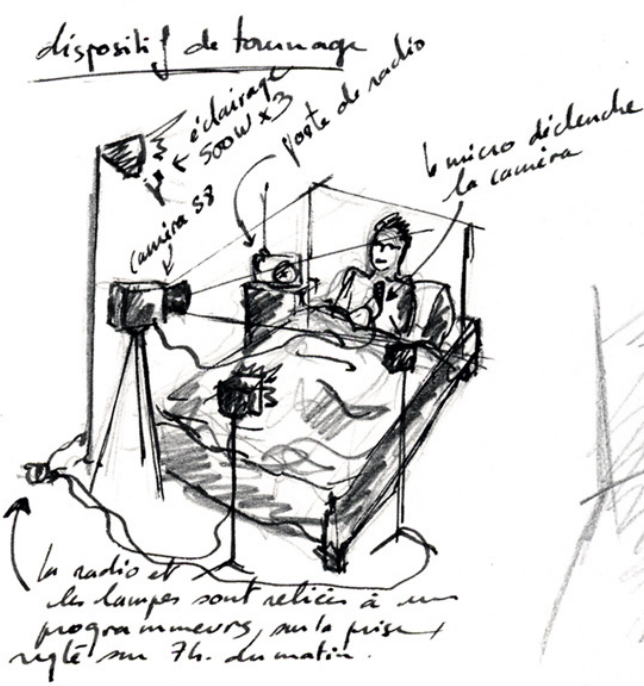 dispositif de tournage
éclairage
500W x3
poste de radio
le micro déclenche
la caméra
caméra S8
la radio et
les lampes sont reliées à un
programmeurs, sur la prise
réglé sur 7h. du matin.